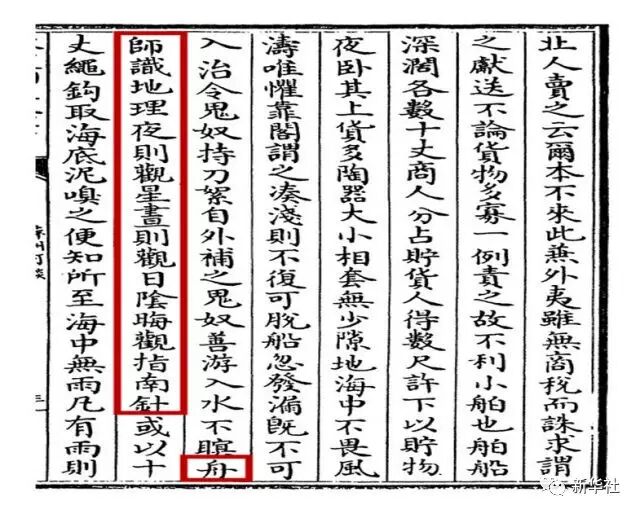 北人賣之云爾本不來此兼外夷雖無商稅而誅求謂
之獻送不論貨物多寡一例責之故不利小舶也舶船
深闊各數十丈商人分占貯貨人得數尺許下以貯物
夜卧其上貨多陶器大小相套無少隙地海中不畏風
濤唯懼靠閣謂之湊淺則不復可脫船忽發漏旣不可
入治令鬼奴持刀絮自外補之鬼奴善游入水不瞑舟
師識地理夜則觀星晝則觀日陰晦觀指南針或以十
丈繩鈎取海底泥嗅之便知所至海中無雨凡有雨則
新华社